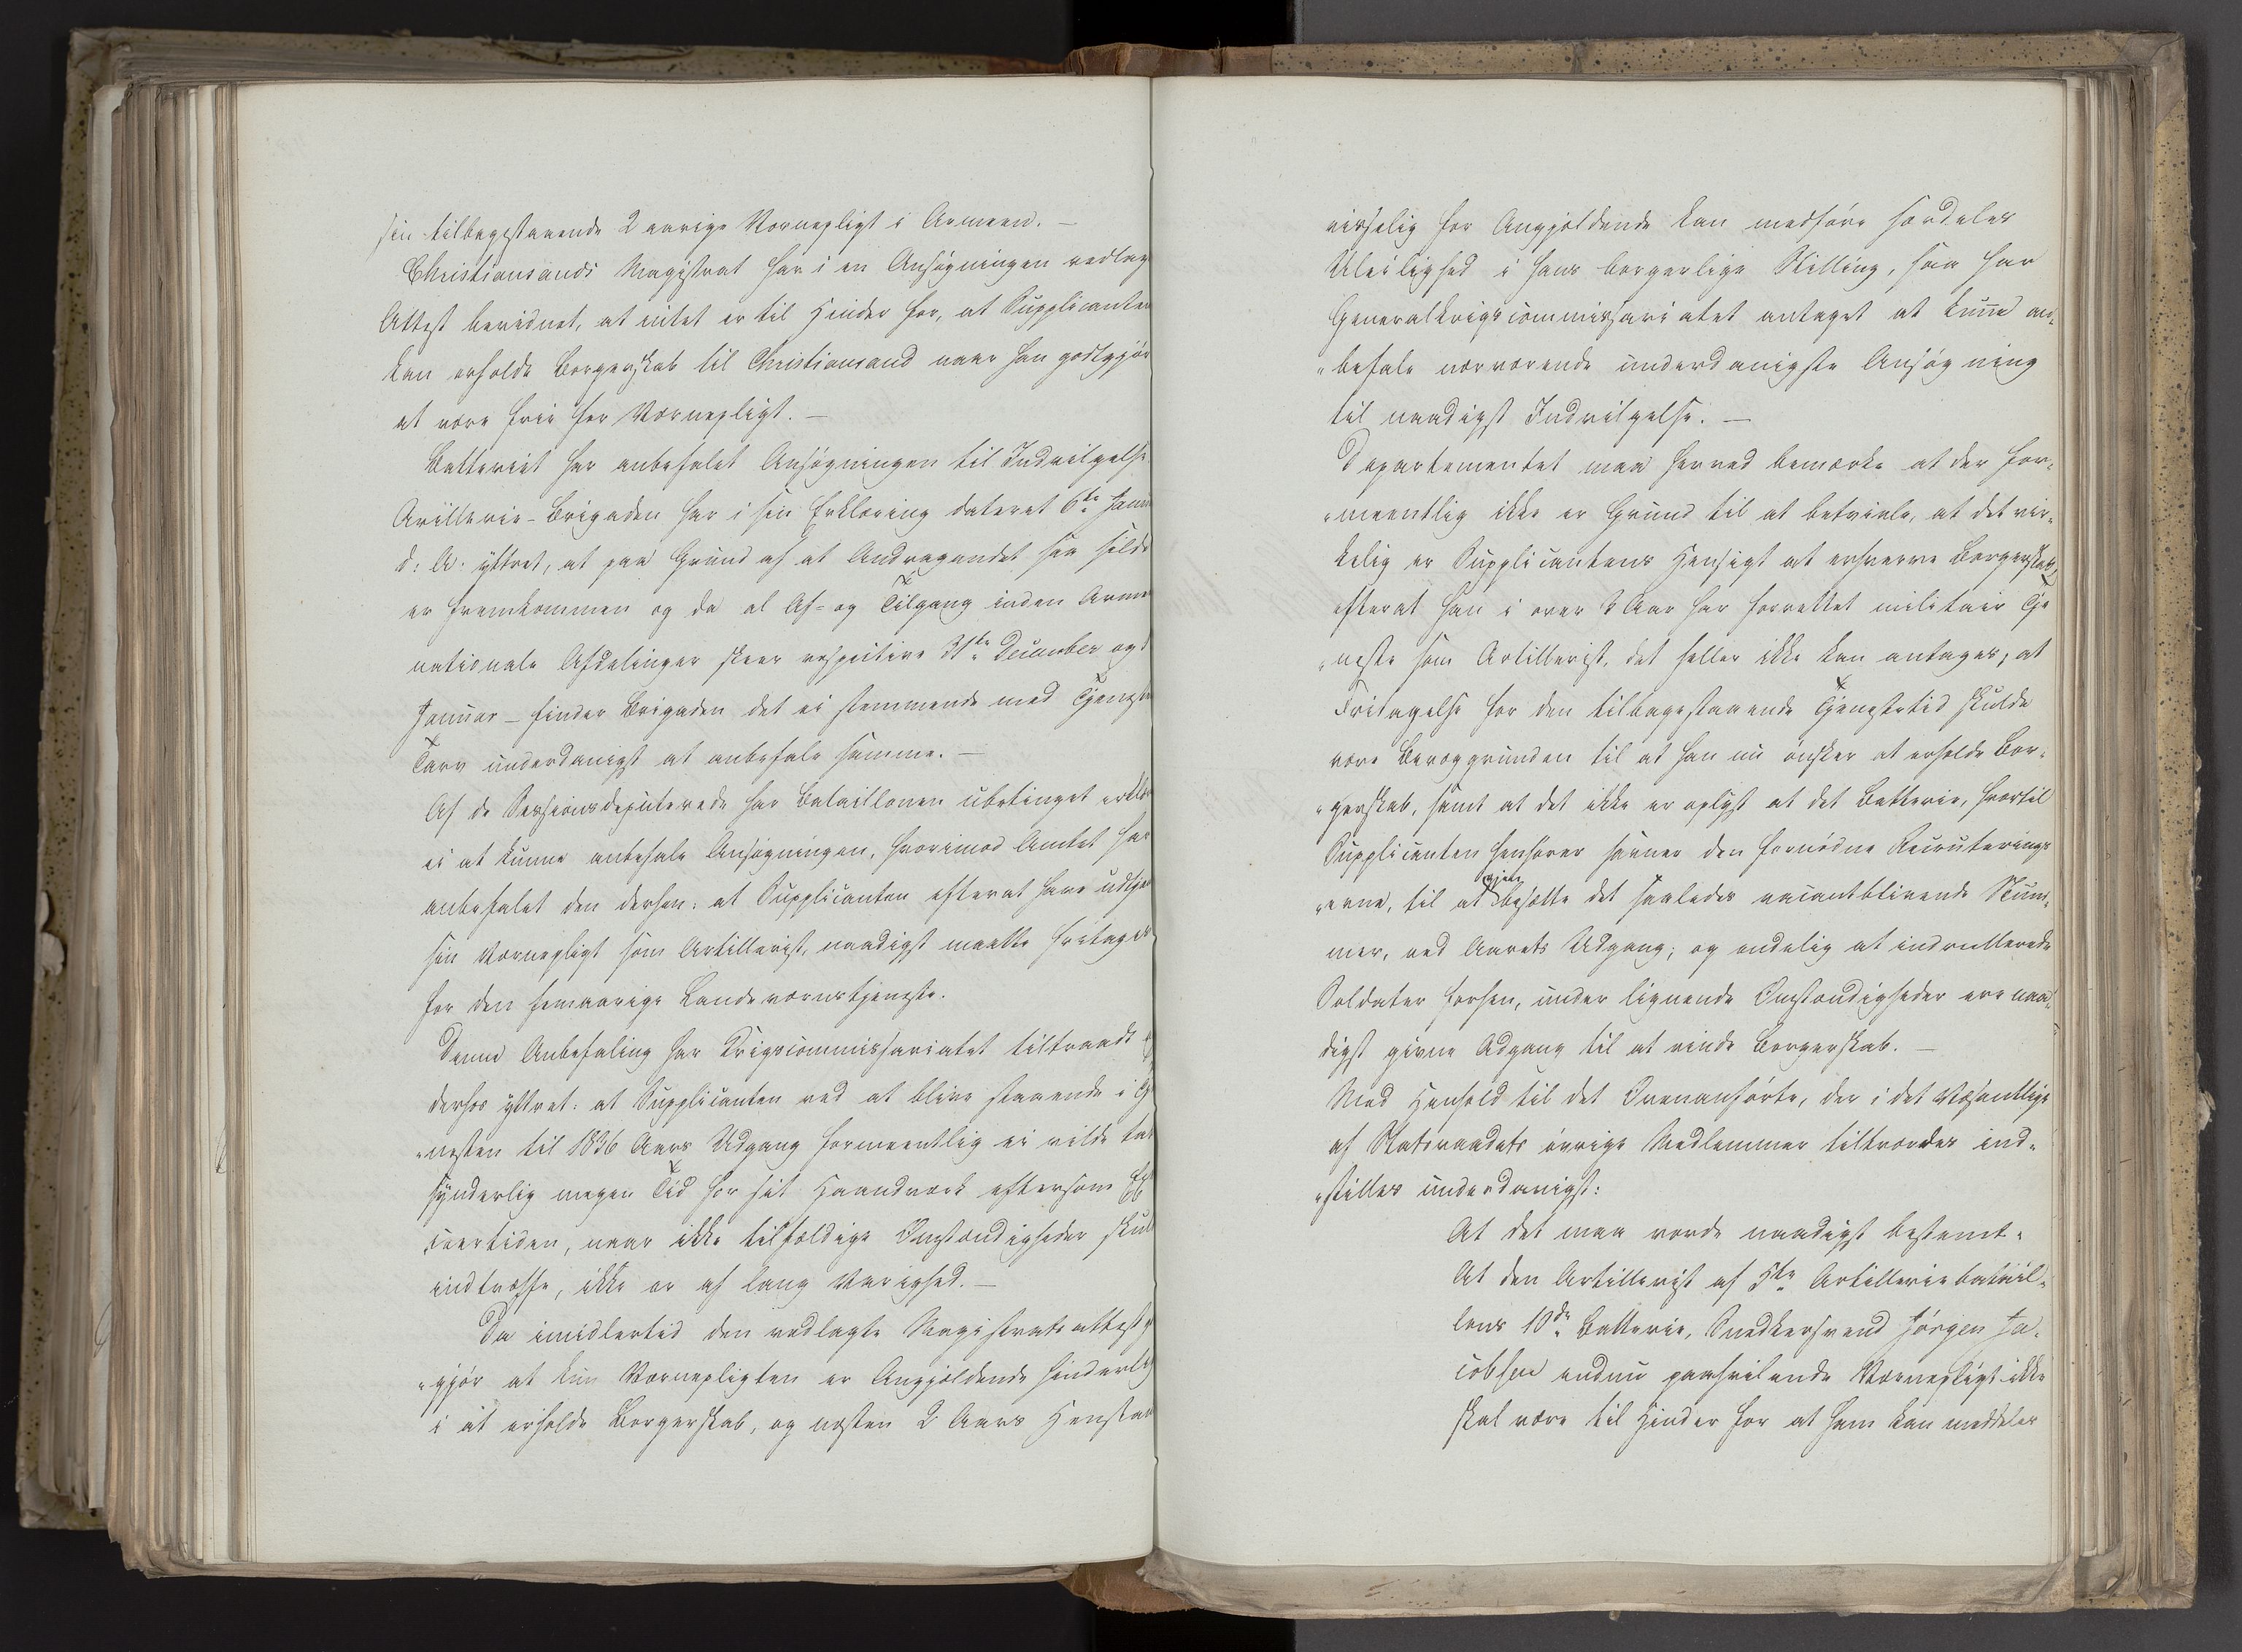 sin tilbagestaaende 2 aarige Værnepligt i Armeen. —
Christiansands Magistrat har i en Ansøgningen vedlag
Attest bevidnet, at intet er til Hinder for, at Supplicanten
kan erholde Borgerskab til Christiansand naar han godtgjør
at være frie for Værnepligt. —
Batteriet har anbefalet Ansøgningen til Indvilgelse
Artillerie-Brigaden har i sin Erklæring dateret 6te Janu
d: A. yttret, at paa Grund af at Andragendet saa silde
er fremkommen og da al Af- og Tilgang inden Arme
nationale Afdelinger skeer respective 31te December og 1
Januar – finder Brigaden det ei stemmende med Tjenest
Tarv underdanigst at anbefale samme. —
Af de Sessionsdeputerede har Bataillonen ubetinget erklæ
ei at kunne anbefale Ansøgningen, hvorimod Amtet har
anbefalet den derhen: at Supplicanten efterat have udtjen
sin Værnepligt som Artillerist, naadigst maatte fritages
for den femaarige Landeværnstjeneste.
Denne Anbefaling har Krigscommissariatet tiltraadt
derhos yttret: at Supplicanten ved at blive staaende i Tje
„nesten til 1836 Aars Udgang formeentlig ei vilde tab
synderlig megen Tid for sit Haandværk eftersom Ex
„ceertiden, naar ikke tilfældige Omstændigheder skul
indtræffe, ikke er af lang Varighed. —
Da imidlertid den vedlagte Magistratsattest
„gjør at kun Værnepligten er Angjældende hinderlig
i at erholde Borgerskab, og næsten 2 Aars Henstan
visselig for Angjældende kan medføre særdeles
Uleilighed i hans borgerlige Stilling, saa har
Generalkrigscommissariatet antaget at kunne an„
„befale nærværende underdanigste Ansøgning
til naadigst Indvilgelse. —
Departementet maa herved bemærke at der for„
„meentlig ikke er Grund til at betvivle, at det vir„
kelig er Supplicantens Hensigt at erhverve Borgerskab,
efterat han i over 3 Aar har forrettet militair Tje
„neste som Artillerist, det heller ikke kan antages, at
Fritagelse for den tilbagestaaende Tjenestetid skulde
være Bevæggrunden til at han nu ønsker at erholde Bor„
„gerskab, samt at det ikke er oplyst at det Batterie, hvortil
Supplicanten henhører savner den fornødne Recruterings
„evne, til at igjen besætte det saaledes vacantblivende Num„
mer, ved Aarets Udgang; og endelig at indrullerede
Soldater forhen, under lignende Omstændigheder ere naa„
digst givne Adgang til at vinde Borgerskab. —
Med Henhold til det Ovenanførte, der i det Væsentlige
af Statsraadets øvrige Medlemmer tiltrædes ind„
„stilles underdanigst:
At det maa vorde naadigst bestemt.
At den Artillerist af 5te Artilleriebatail„
lons 10de Batterie, Snedkersvend Jørgen Ja„
cobsen endnu paahvilende Værnepligt ikke
skal være til Hinder for at ham kan meddeles